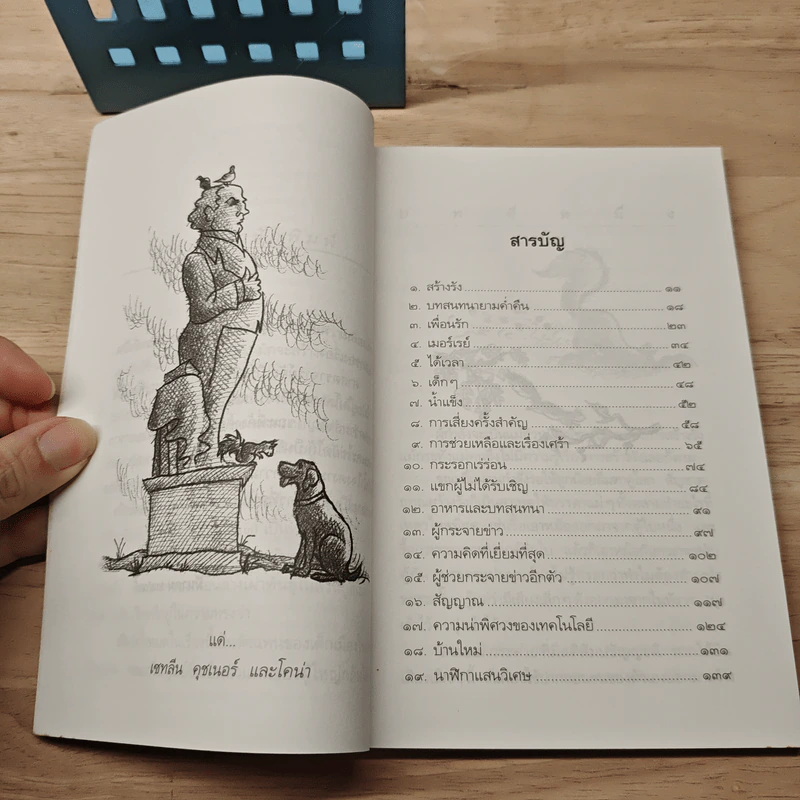 แด่...
เซทลีน คุชเนอร์ และโคน่า
สารบัญ
๑. สร้างรัง ๑๑
๒. บทสนทนายามค่ำคืน ๑๘
๓. เพื่อนรัก ๒๓
๔. เมอร์เรย์ ๓๔
๕. ได้เวลา ๔๒
๖. เด็กๆ ๔๘
๗. น้ำแข็ง ๕๒
๘. การเสี่ยงครั้งสำคัญ ๕๘
๙. การช่วยเหลือและเรื่องเศร้า ๖๕
๑๐. กระรอกเร่ร่อน ๗๔
๑๑. แขกผู้ไม่ได้รับเชิญ ๘๔
๑๒. อาหารและบทสนทนา ๙๑
๑๓. ผู้กระจายข่าว ๙๗
๑๔. ความคิดที่เยี่ยมที่สุด ๑๐๒
๑๕. ผู้ช่วยกระจายข่าวอีกตัว ๑๐๗
๑๖. สัญญาณ ๑๑๗
๑๗. ความน่าพิศวงของเทคโนโลยี ๑๒๔
๑๘. บ้านใหม่ ๑๓๑
๑๙. นาฬิกาแสนวิเศษ ๑๓๙